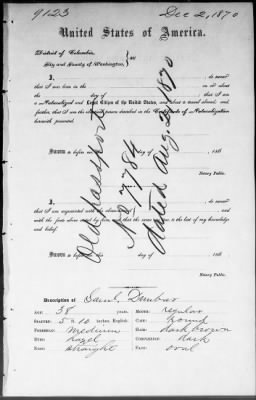 9123
Dec 2, 1870
United States of America.
District of Columbia,
City and County of Washington,
I, do swear
that I was born in the on or about
the day of that I am
a Naturalized and Loyal Citizen of the United States, and about to travel abroad; and
further, that I am the person described in the Certificate of Naturalization
herewith presented.
Sworn before me this day of , 186
Notary Public.
I, do swear
that I am acquainted with the above
with the facts above stated by him, and that the same are true to the best of my knowledge
and belief.
Sworn before me this day of , 186
Notary Public.
Old passport
No 7784
dated Aug. 2, 1870
Description of Saml. Dunbar
AGE: 38 years.
STATURE: 5 ft 10 inches, English.
FOREHEAD: medium
EYES: hazel
NOSE: straight
MOUTH: regular
CHIN: round
HAIR: dark brown
COMPLEXION: dark
FACE: oval